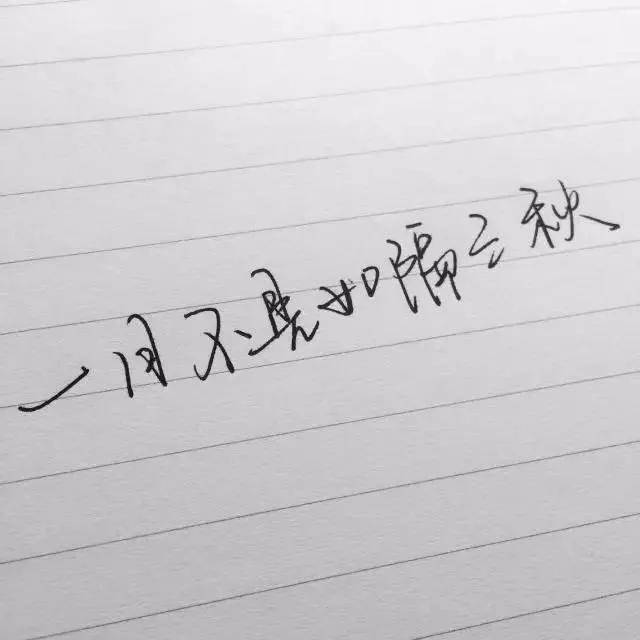 一日不见如隔三秋